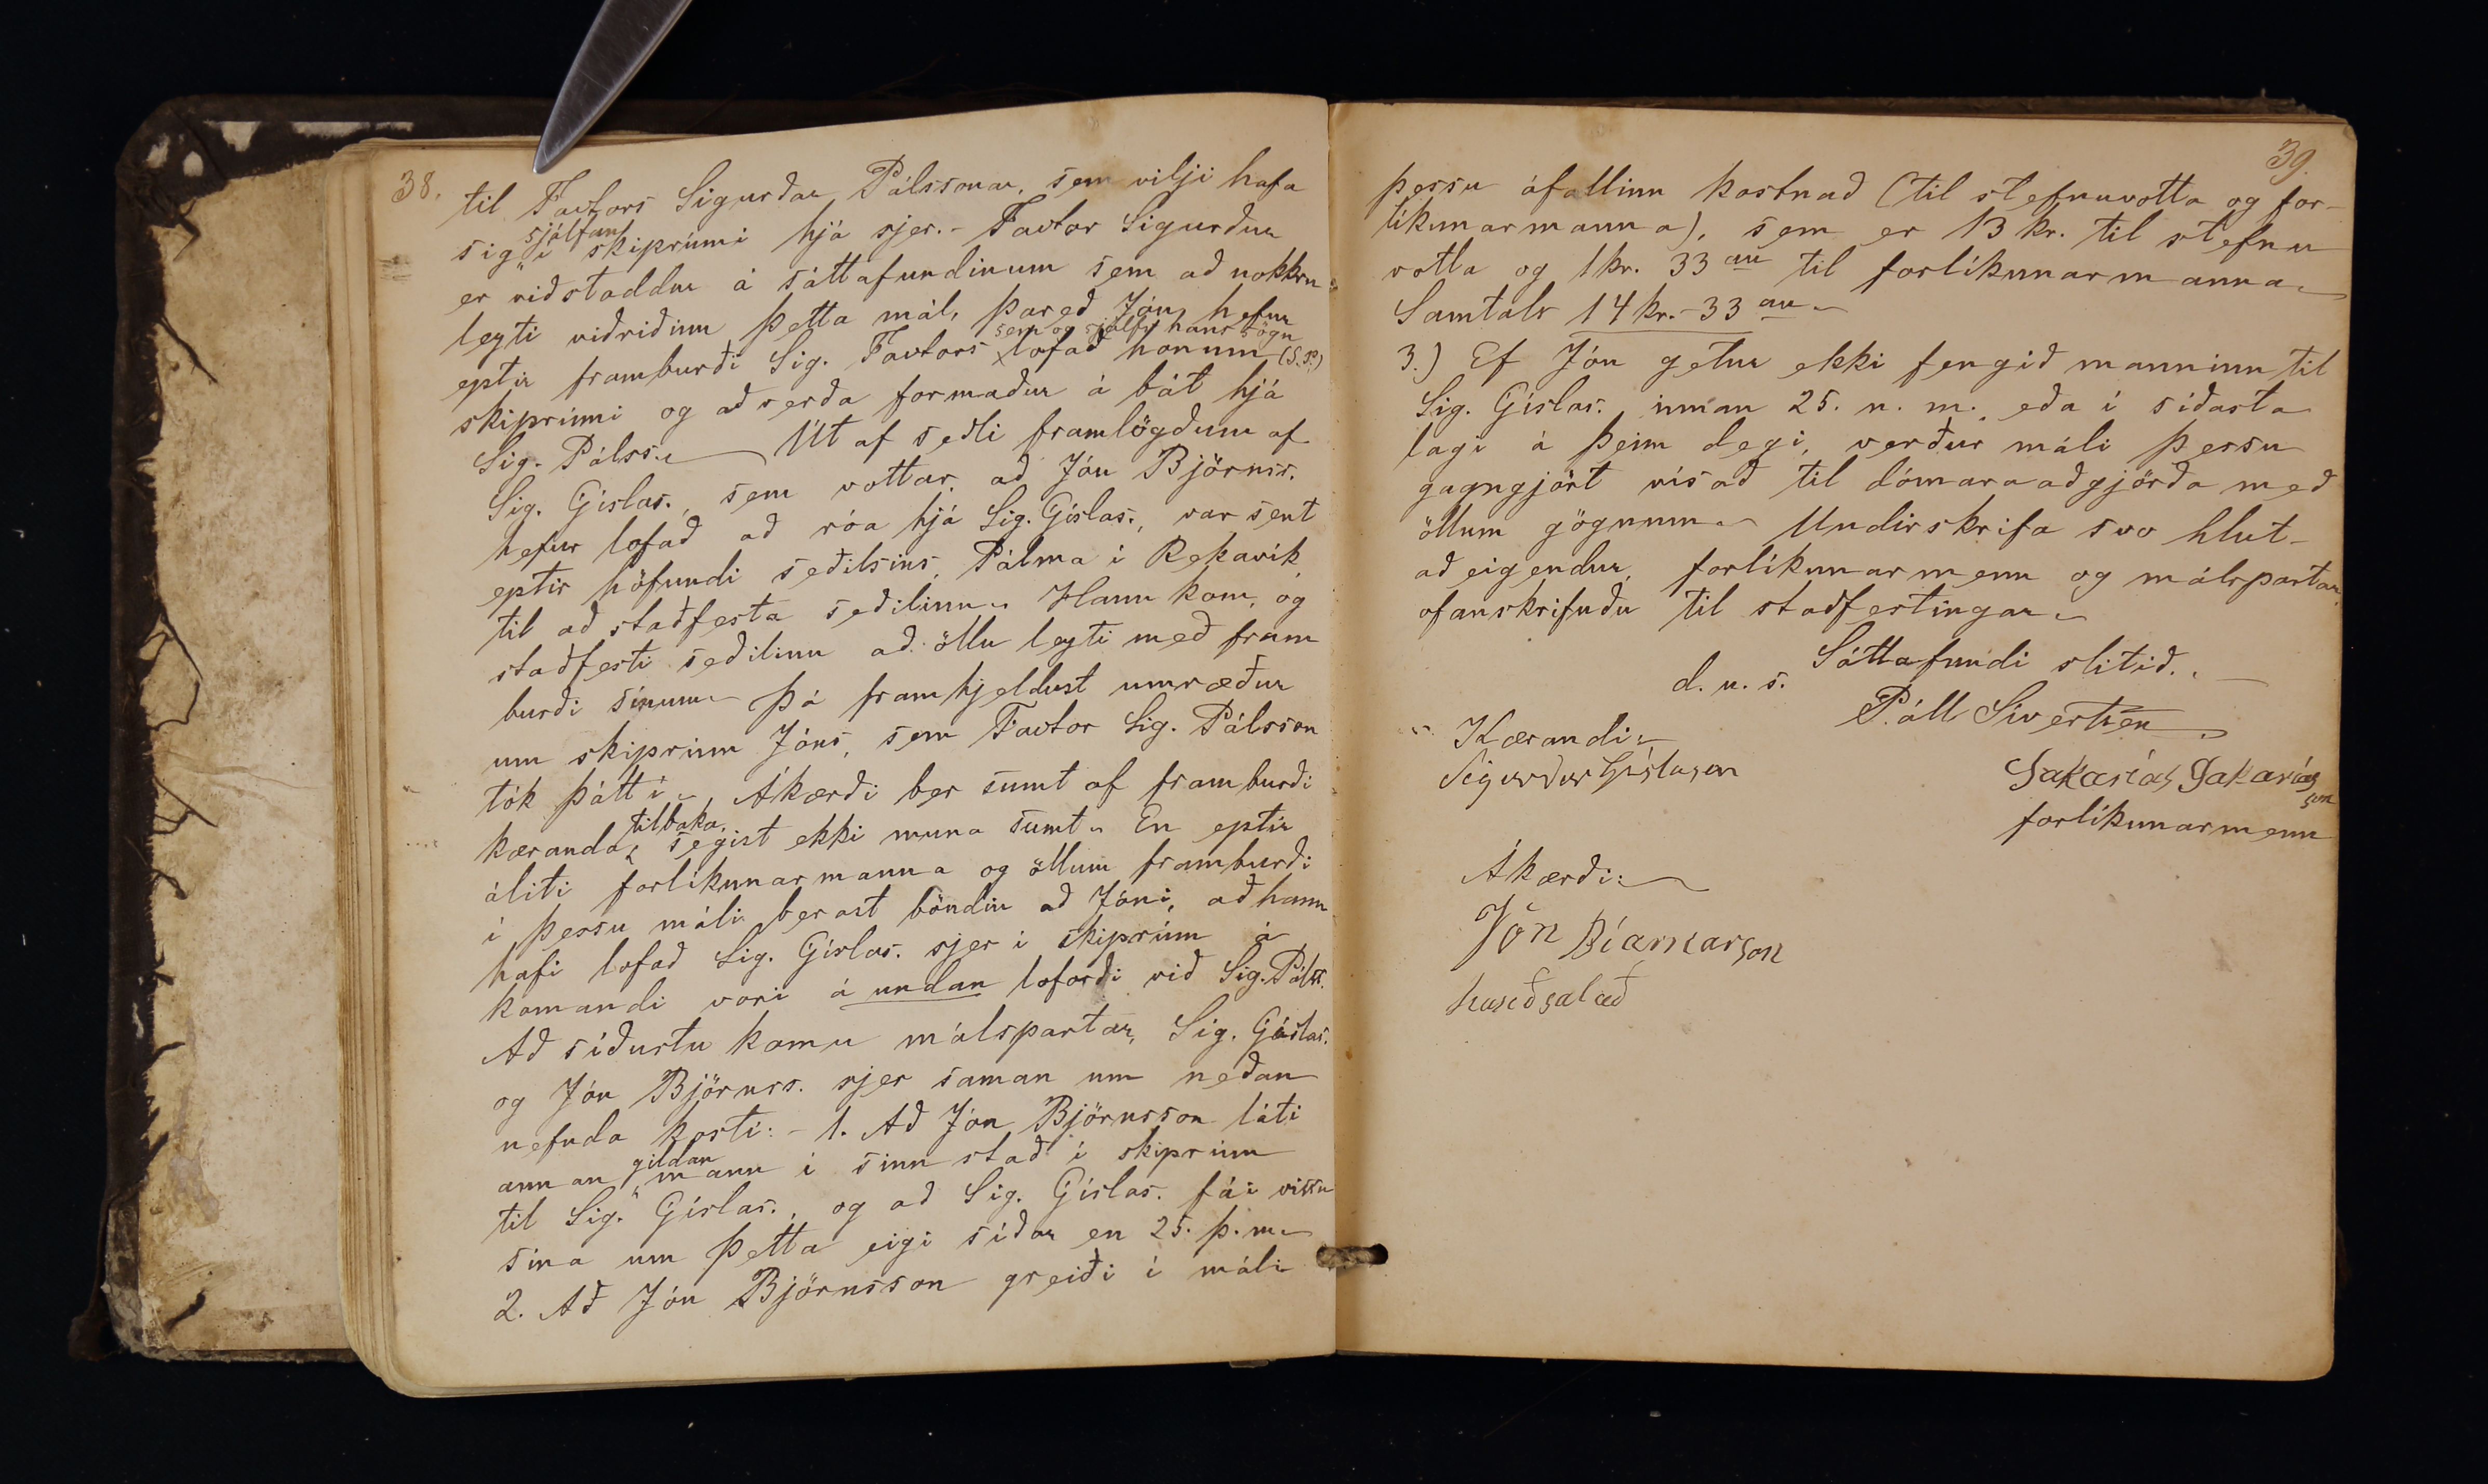 38.
til Factors Sigurðar Pálssonar, sem vilji hafa
sjálfan
sig " í skiprúmi hjá sjer. - Factor Sigurður
er viðstaddur á sáttafundinum sem að nokkru
leyti viðriðinn þetta mál, þareð Jón hefur
sem og sjálfs hans sögn
eptir framburði Sig. Factors lofað honum (S.P.)
skiprúmi og að verða formaður á bát hjá
Sig. Pálss. Út af seðli framlögðum af
Sig. Gíslas., sem vottar, að Jón Björnss.
hefur lofað að róa hjá Sig. Gíslas., var sent
eptir höfundi seðilsins, Pálma í Rekavík
til að staðfesta seðilinn. Hann kom, og
staðfesti seðilinn að öllu leyti með fram
burði sínum. Þá framhjeldust umræður
um skiprúm Jóns, sem Factor Sig. Pálsson
tók þátt í. Ákærði ber sumt af framburði
tilbaka,
kæranda, segist ekki muna sumt. En eptir
áliti forlíkunarmanna og öllum framburði
í þessu máli berast böndin að Jóni, að hann
hafi lofað Sig. Gíslas. sjer í skiprúm á
komandi vori á undan loforði við Sig. Pálss.
Að síðustu komu málspartar, Sig. Gíslas.
og Jón Björnss. sjer saman um neðan
nefnda kosti: - 1. Að Jón Björnsson láti
gildan
annan " mann í sinn stað í skiprúm
til Sig. Gíslas., og að Sig. Gíslas. fái vissu
sína um þetta eigi síðar en 25. þ.m.
2. Að Jón Björnsson greiði í máli
39.
þessu áfallinn kostnað (til stefnuvotta og for-
líkunarmanna), sem er 13 kr. til stefnu
votta og 1 kr. 33 au til forlíkunarmanna.
Samtals 14 kr. - 33 au.
3.) Ef Jón getur ekki fengið manninn til
Sig. Gíslas. innan 25. n. m. eða í síðasta
lagi á þeim degi, verður máli þessu
gagngjört vísað til dómaraaðgjörða með
öllum gögnum. Undirskrifa svo hlut-
aðeigendur, forlíkunarmenn og málspartar,
ofanskrifuðu til staðfestingar.
Sáttafundi slitið.
d. u. s.
Páll Sivertsen
Kærandi:
Sigurður Gíslason
Sakarías Sakarías
son
forlíkunarmenn
Ákærði:
Jón Bíarnarson
hanðsalað